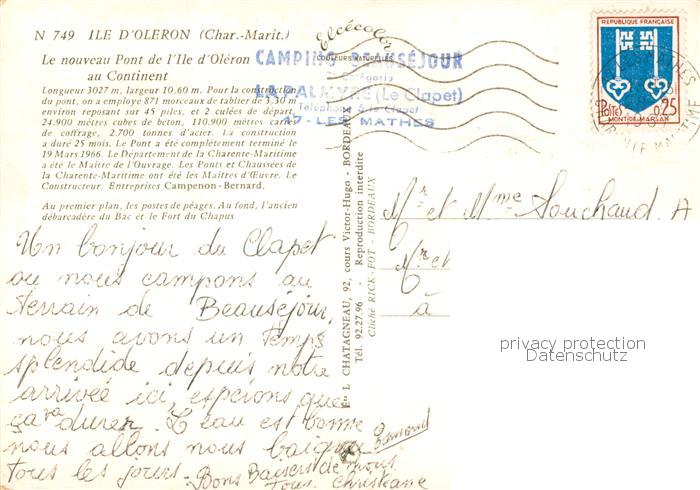 N 749 ILE D'OLERON (Char.-Marit.)
Le nouveau Pont de l'Ile d'Oléron
au Continent
Longueur 3027 m, largeur 10.60 m. Pour la construction
du pont, on a employé 871 morceaux de tablier de 3,30 m
environ reposant sur 45 piles, et 2 culées de départ.
24.900 mètres cubes de béton, 110.900 mètres carrés
de coffrage, 2.700 tonnes d'acier. La construction
a duré 25 mois. Le Pont a été complètement terminé le
19 Mars 1966. Le Département de la Charente-Maritime
a été le Maître de l'Ouvrage. Les Ponts et Chaussées de
la Charente-Maritime ont été les Maitres d'Œuvre. Le
Constructeur, Entreprises Campenon-Bernard.
Au premier plan, les postes de péages. Au fond, l'ancien
débarcadère du Bac et le Fort du Chapus
Elcécolor
COULEURS NATURELLES
CAMPING BEAUSÉJOUR
Catégorie
LA PALMYRE (Le Clapet)
Téléphone 5 le Clapet
17 - LES MATHES
REPUBLIQUE FRANÇAISE
Postes 0,25
MONT-DE-MARSAN
LES MATHES
MARITIME
Ets L. CHATAGNEAU, 92, cours Victor-Hugo - BORDEAUX
Tél. 92.27.96 - Reproduction interdite
Cliché RICK-FOT - BORDEAUX
Mr et Mme Souchaud A
Mr et
à
Un bonjour du Clapet
ou nous campons au
terrain de Beauséjour,
nous avons un temps
splendide depuis notre
arrivée ici, espérons que
ça va durer. L'eau est bonne
nous allons nous baigner
tous les jours - Bons Baisers de nous
Tous. Christiane
privacy protection
Datenschutz